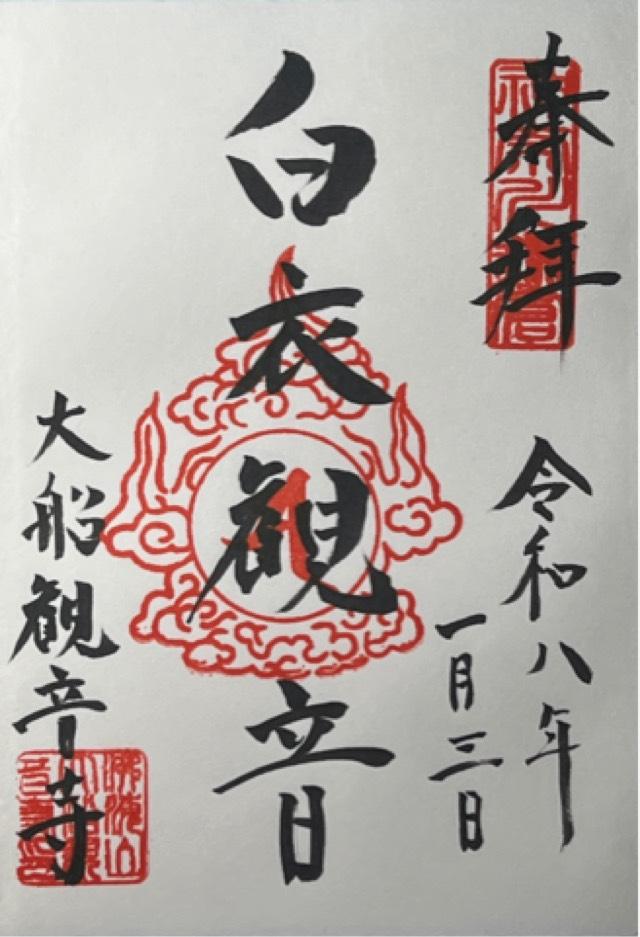 奉拝
令和八年
一月三日
白衣観音
大船観音寺